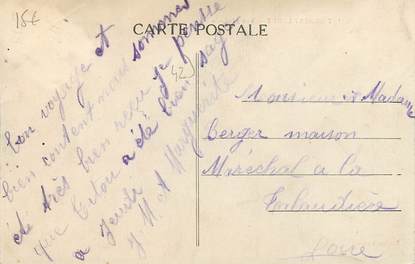 15€
CARTE POSTALE
42
bon voyage et
bien content nous sommes
et très bien reçu je pense
que Titou a été bien sage
a jeudi
J M et Marguerite
Monsieur et Madame
Berger maison
Maréchal a la
Talaudière
Loire